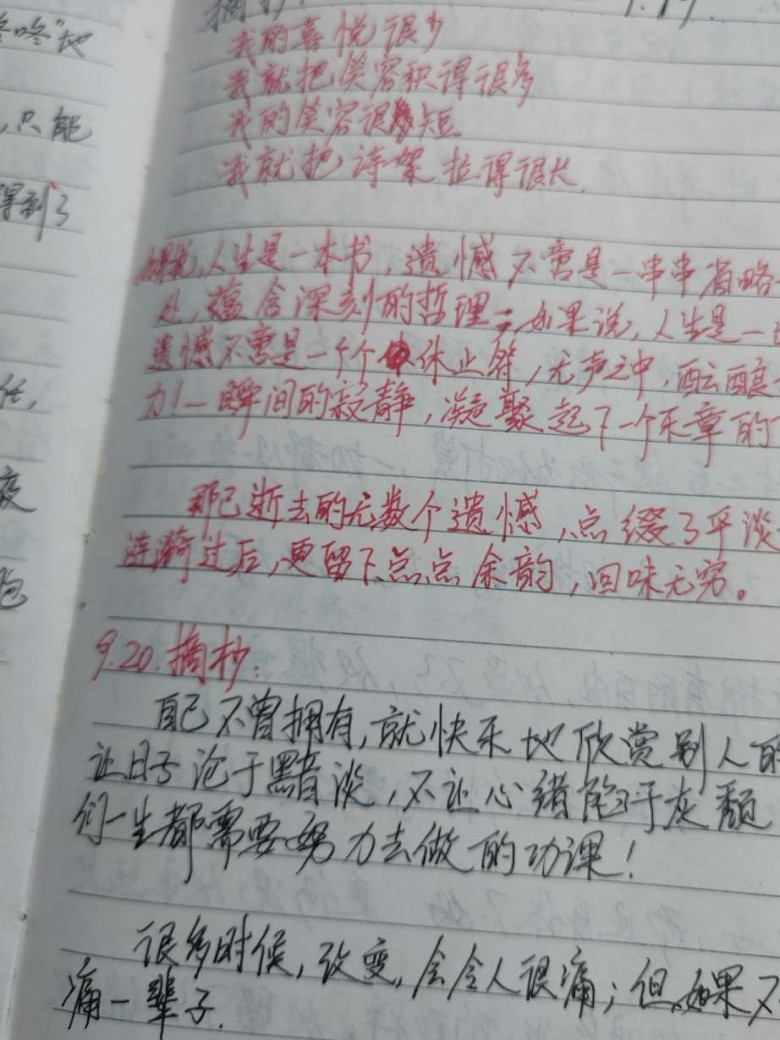 咚咚”地
，只能
得到了
摘抄：
我的喜悦很少
我就把笑容积得很多
我的笑容很短
我就把诗絮拉得很长
如果说，人生是一本书，遗憾不啻是一串串省略
处，蕴含深刻的哲理；如果说，人生是一
遗憾不啻是一个个休止符，无声之中，酝酿
力！一瞬间的寂静，凝聚起下一个乐章的
那已逝去的无数个遗憾，点缀了平淡
涟漪过后，更留下点点余韵，回味无穷。
9.20.摘抄：
自己不曾拥有，就快乐地欣赏别人的
让日子沦于黯淡，不让心绪陷于灰颓
们一生都需要努力去做的功课！
很多时候，改变，会令人很痛；但，如果不
痛一辈子．